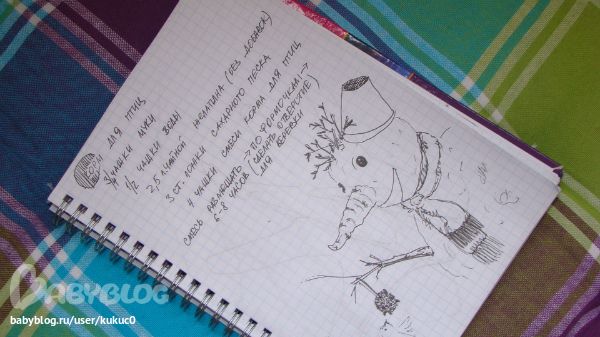 КОРМ ДЛЯ ПТИЦ
3/4 ЧАШКИ МУКИ
1/2 ЧАШКИ ВОДЫ
2,5 Л. ЧАЙНОЙ ЖЕЛАТИНА (БЕЗ ДОБАВОК)
3 СТ. ЛОЖКИ САХАРНОГО ПЕСКА
4 ЧАШКИ СМЕСИ КОРМА ДЛЯ ПТИЦ
СМЕСЬ РАЗМЕЩАТЬ → ПО ФОРМОЧКАМ →
6-8 ЧАСОВ → СДЕЛАТЬ ОТВЕРСТИЕ)
ДЛЯ ВЕРЕВКИ
BABYBLOG
babyblog.ru/user/kukuc0